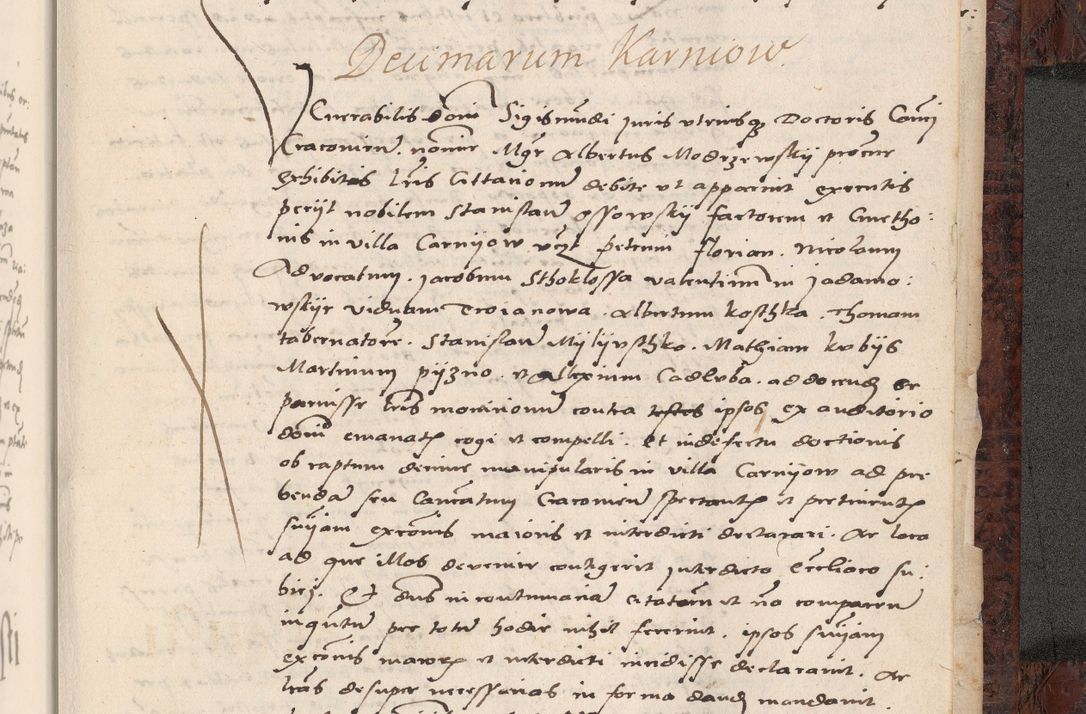 Decimarum Karniow
Venerabilis domi Sigismundi juris utriusq Doctoris Cani
Cracovien. nomine Mgr Albertus Modrzewskij procur
exhibitis lris Cittationum debite ut apparuit executis
petijt nobilem Stanislaum Ossowskij factorem et Cmetho:
nis in villa Carnijow vczt petrum florian. Nicolaum
Advocatum. Jacobum Sthoklossa valentinum
wskije viduam Troianowa. Albertum koszthka. Thomam
tabernatore. Stanislaum Mijlijvsthko. Mathiam kubijs
Martinum pijzno. et Allexium Cadluba. ad docend se
paruisse lris monitionum contra ipsos ex auditorio
domi emanatis cogi et compelli. Et in defectu doctionis
ob raptum decime manipularis in villa Carnijow ad pre
bendam seu Canonicatum Cracovien spectantis et pertinentis
suijam exconis maioris et interdicti declarari. Ac loca
ad que illos devenire contigerit interdicto Ecclico su:
bici. Et dns in contumaciam citatorum et non comparen
in quantum per totum hodie nihil fecerint. ipsos suijam
exconis maioris et interdicti incidisse declaravit. Ac
lras desuper necessarias in forma dandi mandavit.